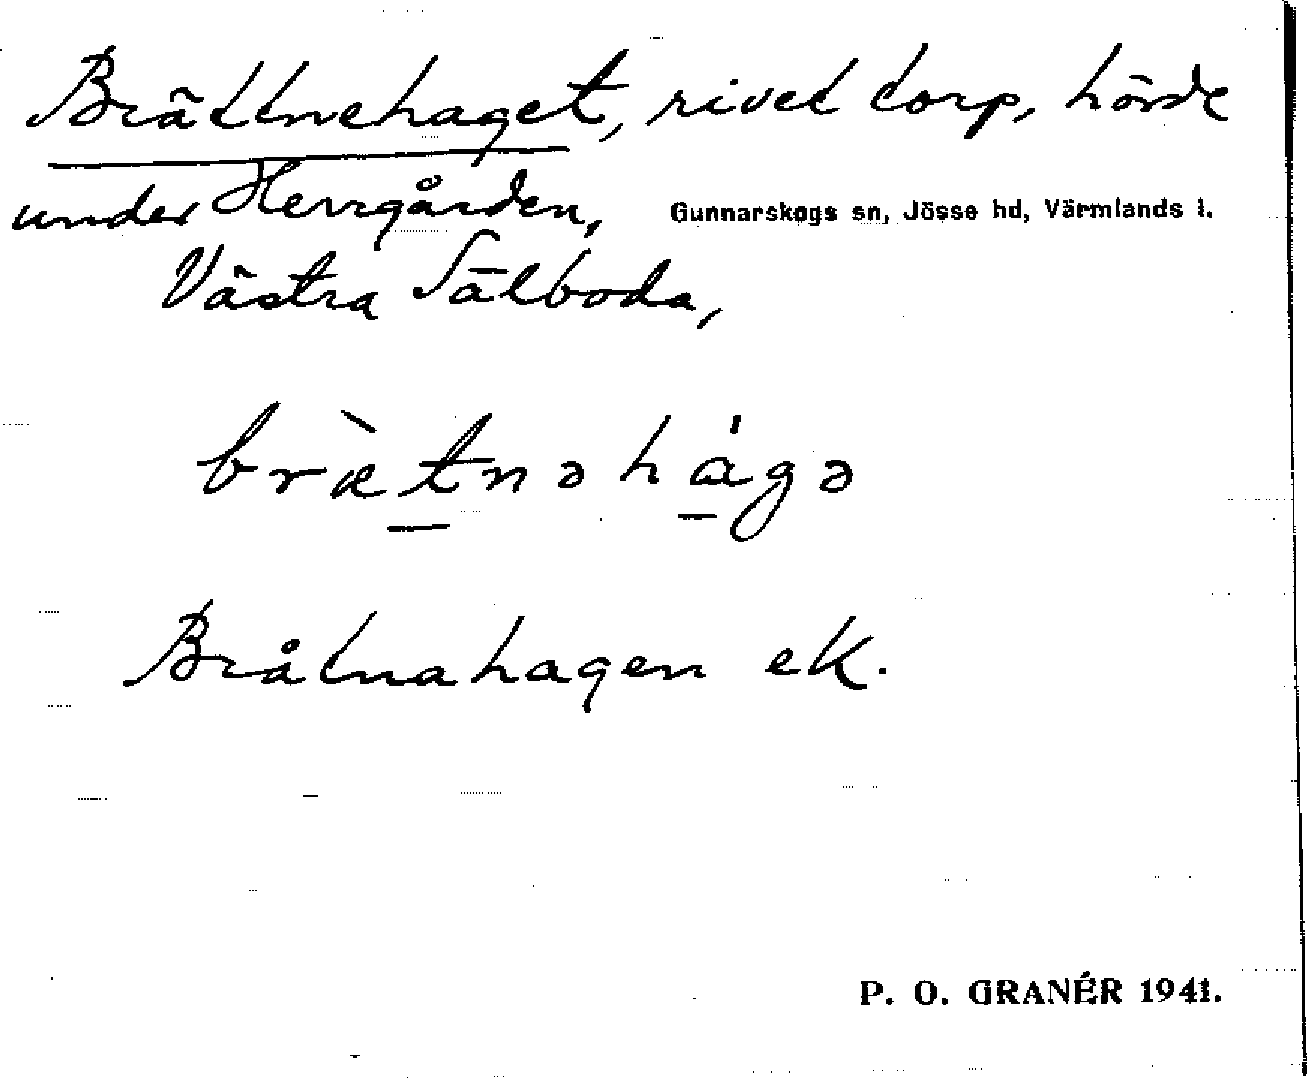 Brättnehaget, rivet torp, hörde
under Herrgården, Gunnarskogs sn, Jösse hd, Värmlands l.
Västra Sälboda,
bræ̀tnəhágə
Bråtnahagen ek.
P. O. GRANÉR 1941.